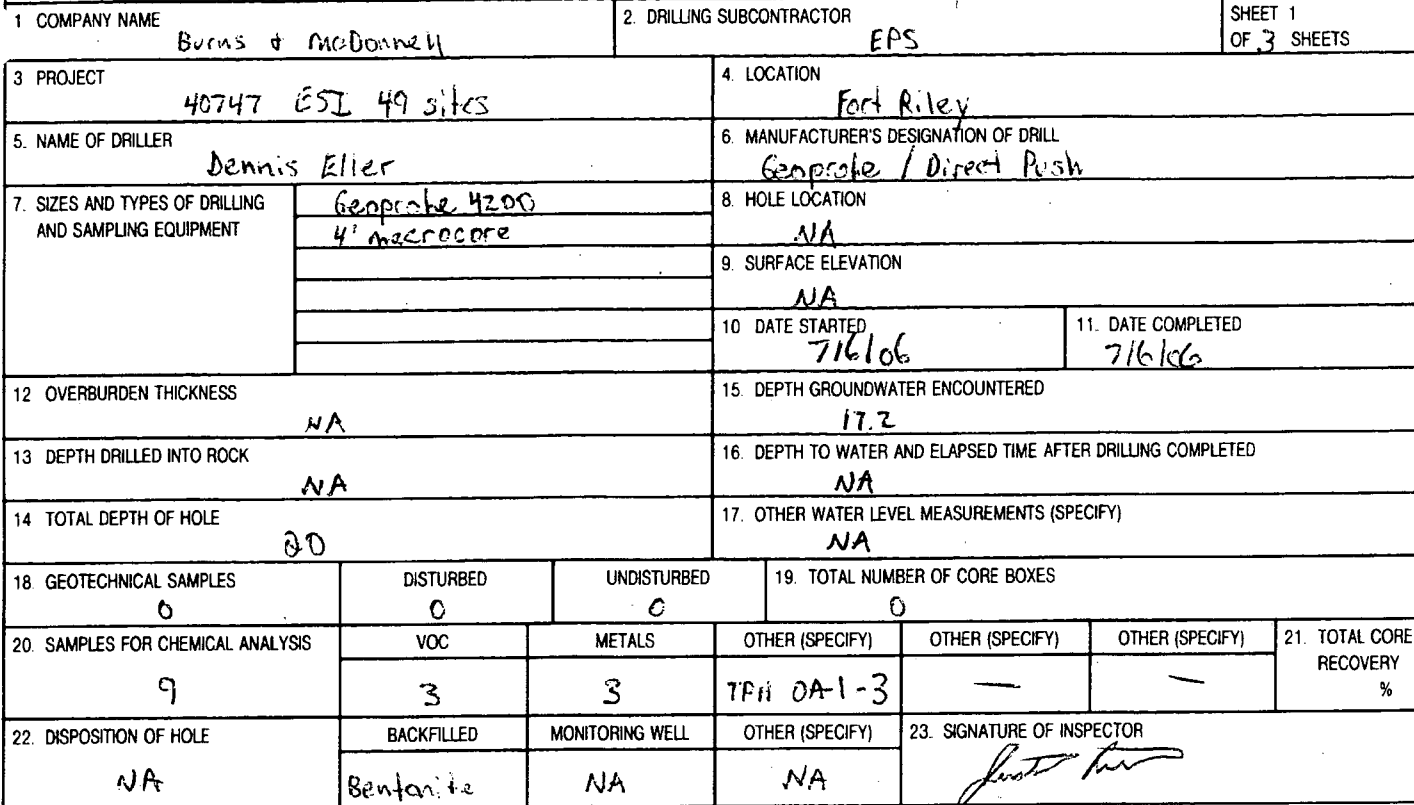 1 COMPANY NAME
Burns & McDonnell
2. DRILLING SUBCONTRACTOR
EPS
SHEET 1
OF 3 SHEETS
3 PROJECT
40747 ESI 49 sites
4. LOCATION
Fort Riley
5. NAME OF DRILLER
Dennis Eller
6. MANUFACTURER'S DESIGNATION OF DRILL
Geoprobe / Direct Push
7. SIZES AND TYPES OF DRILLING
AND SAMPLING EQUIPMENT
Geoprobe 4200
4' macrocore
8. HOLE LOCATION
NA
9. SURFACE ELEVATION
NA
10 DATE STARTED
7/6/06
11. DATE COMPLETED
7/6/06
12 OVERBURDEN THICKNESS
NA
15. DEPTH GROUNDWATER ENCOUNTERED
17.2
13 DEPTH DRILLED INTO ROCK
NA
16. DEPTH TO WATER AND ELAPSED TIME AFTER DRILLING COMPLETED
NA
14 TOTAL DEPTH OF HOLE
20
17. OTHER WATER LEVEL MEASUREMENTS (SPECIFY)
NA
18. GEOTECHNICAL SAMPLES
0
DISTURBED
0
UNDISTURBED
0
19. TOTAL NUMBER OF CORE BOXES
0
20. SAMPLES FOR CHEMICAL ANALYSIS
9
VOC
3
METALS
3
OTHER (SPECIFY)
TPH OA-1-3
OTHER (SPECIFY)
—
OTHER (SPECIFY)
—
21. TOTAL CORE
RECOVERY
%
22. DISPOSITION OF HOLE
NA
BACKFILLED
Bentonite
MONITORING WELL
NA
OTHER (SPECIFY)
NA
23. SIGNATURE OF INSPECTOR